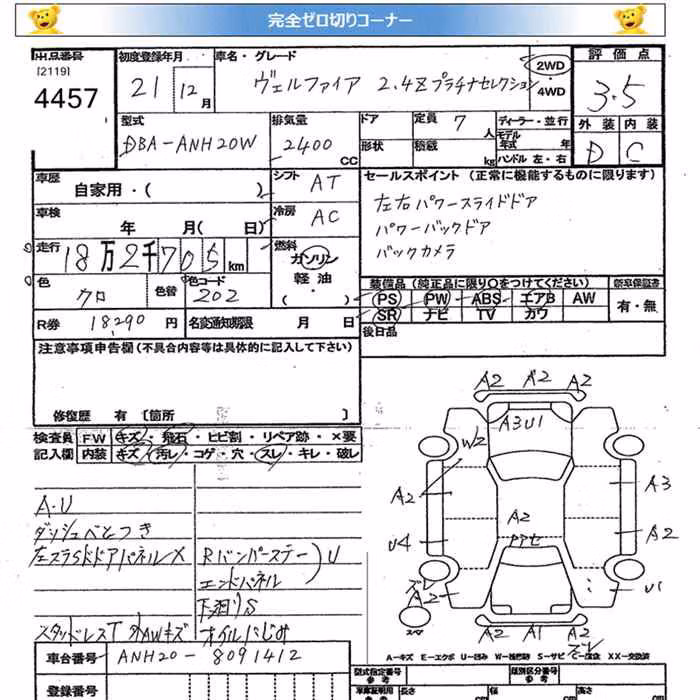 完全ゼロ切りコーナー
出品番号
[2119]
4457
初度登録年月
21 12月
車名・グレード
ヴェルファイア 2.4Zプラチナセレクション
2WD
・4WD
評価点
3.5
型式
DBA-ANH20W
排気量
2400
CC
ドア
形状
定員 7 人
積載 kg
ディーラー・並行
モデル
年式 年
ハンドル 左・右
外装 内装
D C
車歴
自家用・( )
シフト AT
セールスポイント (正常に機能するものに限ります)
左右パワースライドドア
パワーバックドア
バックカメラ
車検
年 月( 日)
冷房 AC
走行
18万2千705km
燃料
ガソリン
軽油
・( )
色
クロ
色替
色コード
202
装備品 (純正品に限り○をつけてください) 新車保証書
PS・PW・ABS・エアB AW
SR ナビ TV カワ
有・無
R券 18,290 円
名変通知期限 月 日
後日品
注意事項申告欄(不具合内容等は具体的に記入して下さい)
修復歴 有 [箇所 ]
検査員
記入欄
FW キズ・飛石・ヒビ割・リペア跡・×要
内装 キズ・汚レ・コゲ・穴・スレ・キレ・破レ
A・U
ダッシュべとつき
左スライドドアパネルX
Rバンパーステー
エンドパネル
)U
下廻りS
スタッドレスT 外AWキズ オイルにじみ
A2 A2 A2
A3U1
W2
A2
A3
A2
U4
A2
ズレ
A2
U1
スペア
A2 A1 A2
ズレ
A-キズ E-エクボ U-凹み W-補修跡 S-サビ C-腐食 XX-交換済
車台番号 ANH20-8091412
登録番号
型式指定番号
参考
類別区分番号
参考
車庫証明用
参考
長さ
幅
高さ